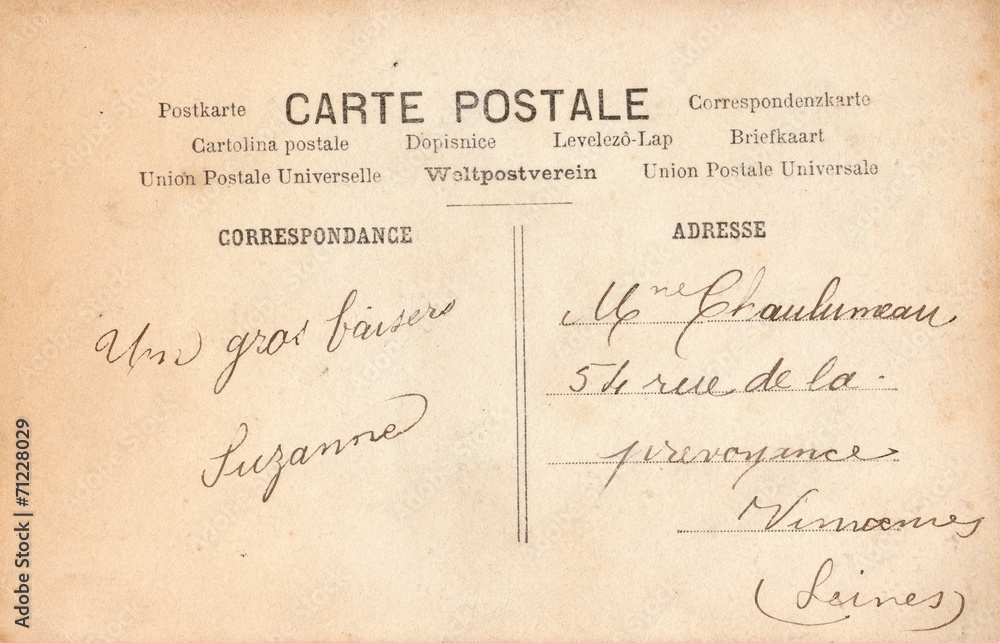 CARTE POSTALE
Postkarte
Correspondenzkarte
Cartolina postale Dopisnice Levelezô-Lap Briefkaart
Union Postale Universelle Weltpostverein Union Postale Universale
CORRESPONDANCE
Un gros baisers
Suzanne
ADRESSE
Mme Chaulumeau
54 rue de la
prevoyance
Vincennes
(Seines)
Adobe Stock | #71228029